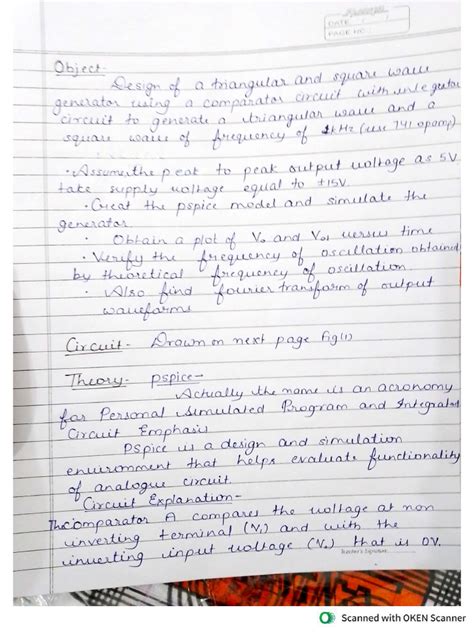 DATE
PAGE NO.
Object-
Design of a triangular and square wave
generator using a comparator circuit with integrator
circuit to generate a triangular wave and a
square wave of frequency of 1kHz (use 741 opamp)
· Assume the peak to peak output voltage as 5V
take supply voltage equal to ±15V.
· Creat the pspice model and simulate the
generator.
· Obtain a plot of Vo and Vo1 versus time
· Verify the frequency of oscillation obtained
by theoretical frequency of oscillation.
· Also find fourier transform of output
waveforms
Circuit- Drawn on next page fig(1)
Theory- pspice-
Actually the name is an acronomy
for Personal Simulated Program and Integrated
Circuit Emphasis
PSpice is a design and simulation
environment that helps evaluate functionality
of analogue circuit.
Circuit Explanation-
The comparator A compares the voltage at non
inverting terminal (V1) and with the
inverting input voltage that is 0V.
Teacher's Signature
Scanned with OKEN Scanner